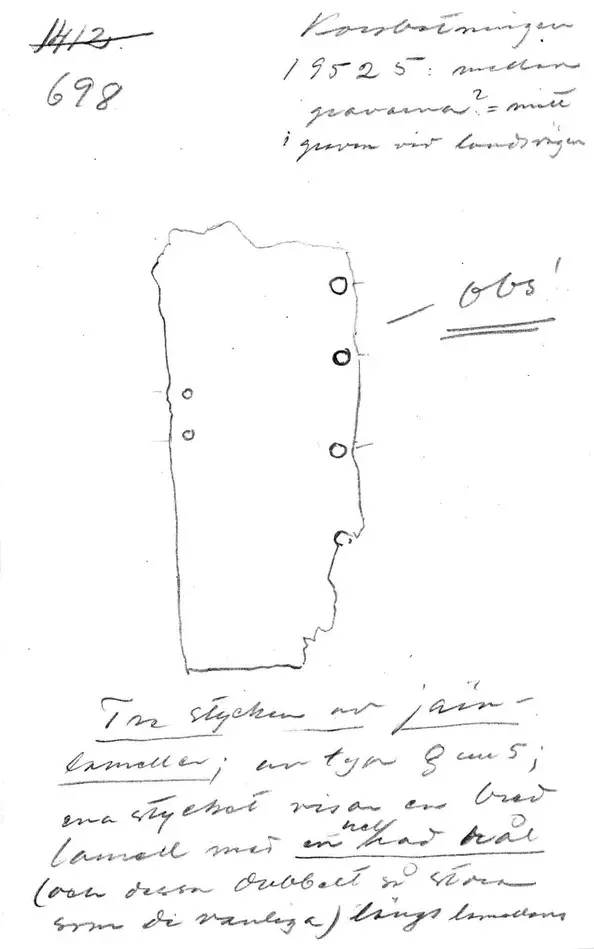 1412.
698
Korsbetningen
19525: mellan
gravarna? = mitt
i graven vid landsvägen
obs!
Tre stycken av järn-
lameller; av typ 8 em 5;
ena stycket visar en bred
lamell med en hel rad hål
(och dessa dubbelt så stora
som de vanliga) längs lamellens